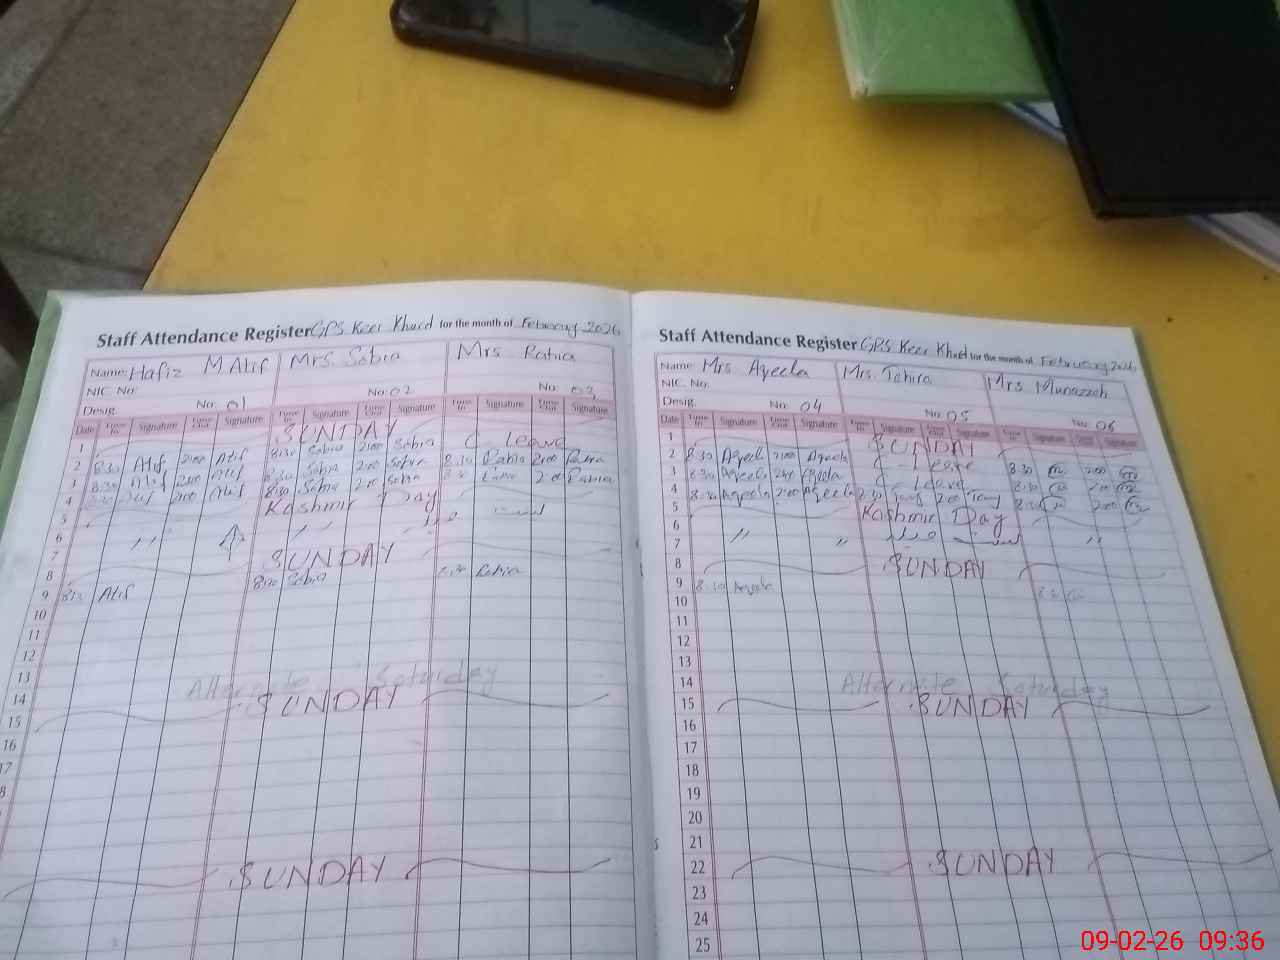 Staff Attendance Register GPS Keer Khurd for the month of February 2026
Name: Hafiz M Atif Mrs. Sobia Mrs Rabia
NIC No:
Desig. No: 01 No: 02 No: 03
Date Time In Signature Time Out Signature Time In Signature Time Out Signature Time In Signature Time Out Signature
1 SUNDAY
2 8:30 Atif 2:00 Atif 8:30 Sobia 2:00 Sobia Leave
3 8:30 Atif 2:00 Atif 8:30 Sobia 2:00 Sobia 8:30 Rabia 2:00 Rabia
4 8:30 Atif 2:00 Atif 8:30 Sobia 2:00 Sobia 8:30 Rabia 2:00 Rabia
5 Kashmir Day
6
7 " "
8 SUNDAY
9 8:30 Atif 8:30 Sobia 8:30 Rabia
10
11
12
13
14 Alternate Saturday
15 SUNDAY
16
17
8
SUNDAY
Staff Attendance Register GPS Keer Khurd for the month of February 2026
Name: Mrs Aqeela Mrs. Tahira Mrs Munazzah
NIC No:
Desig. No: 04 No: 05 No: 06
Date Time In Signature Time Out Signature Time In Signature Time Out Signature Time In Signature Time Out Signature
1 SUNDAY
2 8:30 Aqeela 2:00 Aqeela Leave 8:30 2:00
3 8:30 Aqeela 2:00 Aqeela Leave 8:30 2:00
4 8:30 Aqeela 2:00 Aqeela 2:00 8:30 2:00
5 Kashmir Day
6
7 " " "
8 SUNDAY
9 8:30 Aqeela 8:30
10
11
12
13
14 Alternate Saturday
15 SUNDAY
16
17
18
19
20
21
22 SUNDAY
23
24
25
09-02-26 09:36